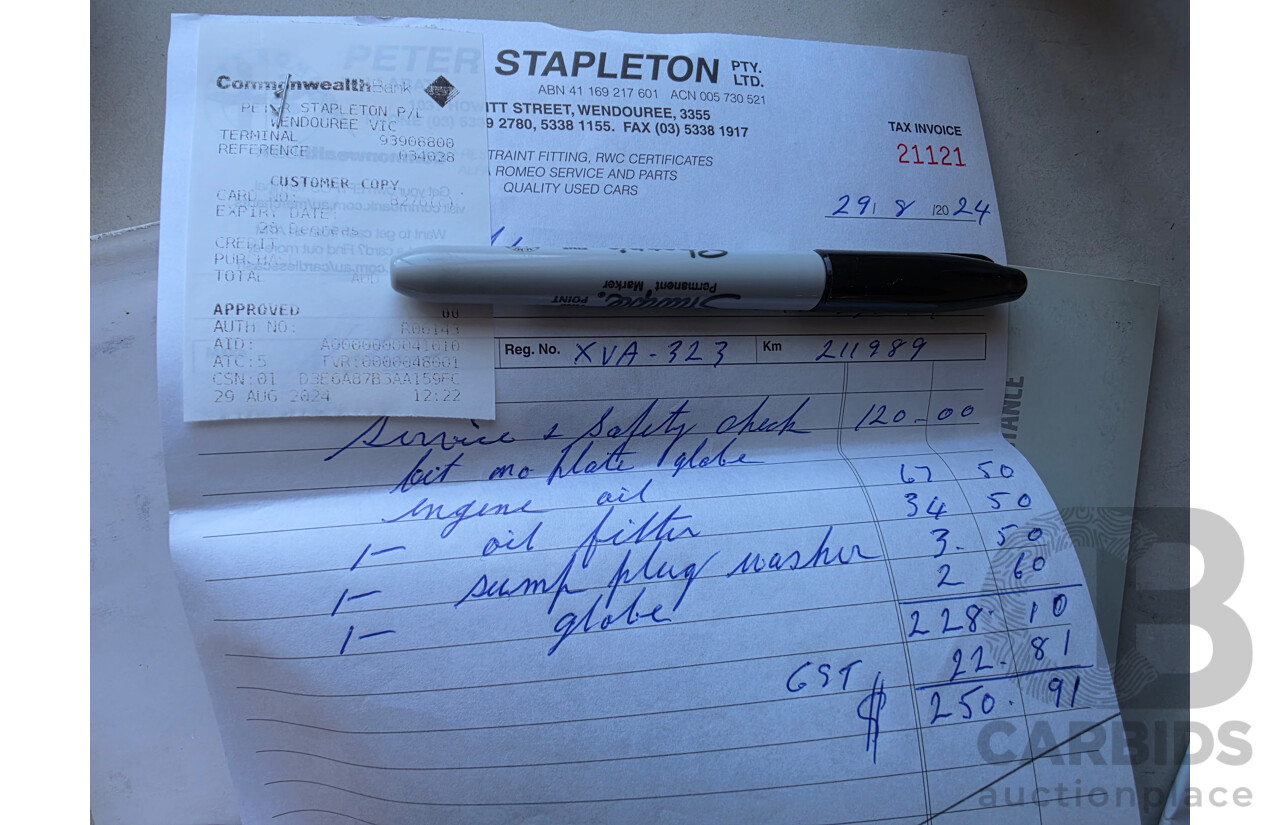 PETER STAPLETON PTY. LTD.
ABN 41 169 217 601 ACN 005 730 521
ITT STREET, WENDOUREE, 3355
9 2780, 5338 1155. FAX (03) 5338 1917
TRAINT FITTING, RWC CERTIFICATES
ROMEO SERVICE AND PARTS
QUALITY USED CARS
TAX INVOICE
21121
29/ 8 /20 24
CommonwealthBank
PETER STAPLETON P/L
WENDOUREE VIC
TERMINAL 93908800
REFERENCE 034028
CUSTOMER COPY
CARD NO:
EXPIRY DATE:
CREDIT
PURCHA
TOTAL AU
APPROVED 00
AUTH NO: R06143
AID: A0000000041010
ATC:5 TVR:0000048001
CSN:01 D3E6A87B5AA159FC
29 AUG 2024 12:22
Sharpie
Permanent Marker
POINT
Reg. No. XVA-323 Km 211989
Service & Safety check 120-00
fit no plate globe
engine oil 67 50
1- oil filter 34 50
1- sump plug washer 3. 50
1- globe 2 60
228. 10
GST 22. 81
$ 250. 91
TANCE
CARBIDS
auctionplace